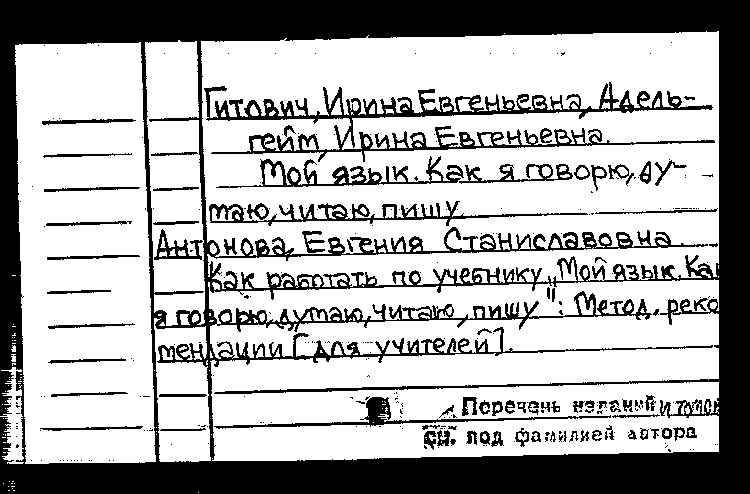 Гитович, Ирина Евгеньевна, Адель-
гейм, Ирина Евгеньевна.
Мой язык. Как я говорю, ду-
маю, читаю, пишу
Антонова, Евгения Станиславовна.
Как работать по учебнику „Мой язык. Как
я говорю, думаю, читаю, пишу": Метод. реко
мендации [для учителей].
Перечень изданий и
см. под фамилией автора